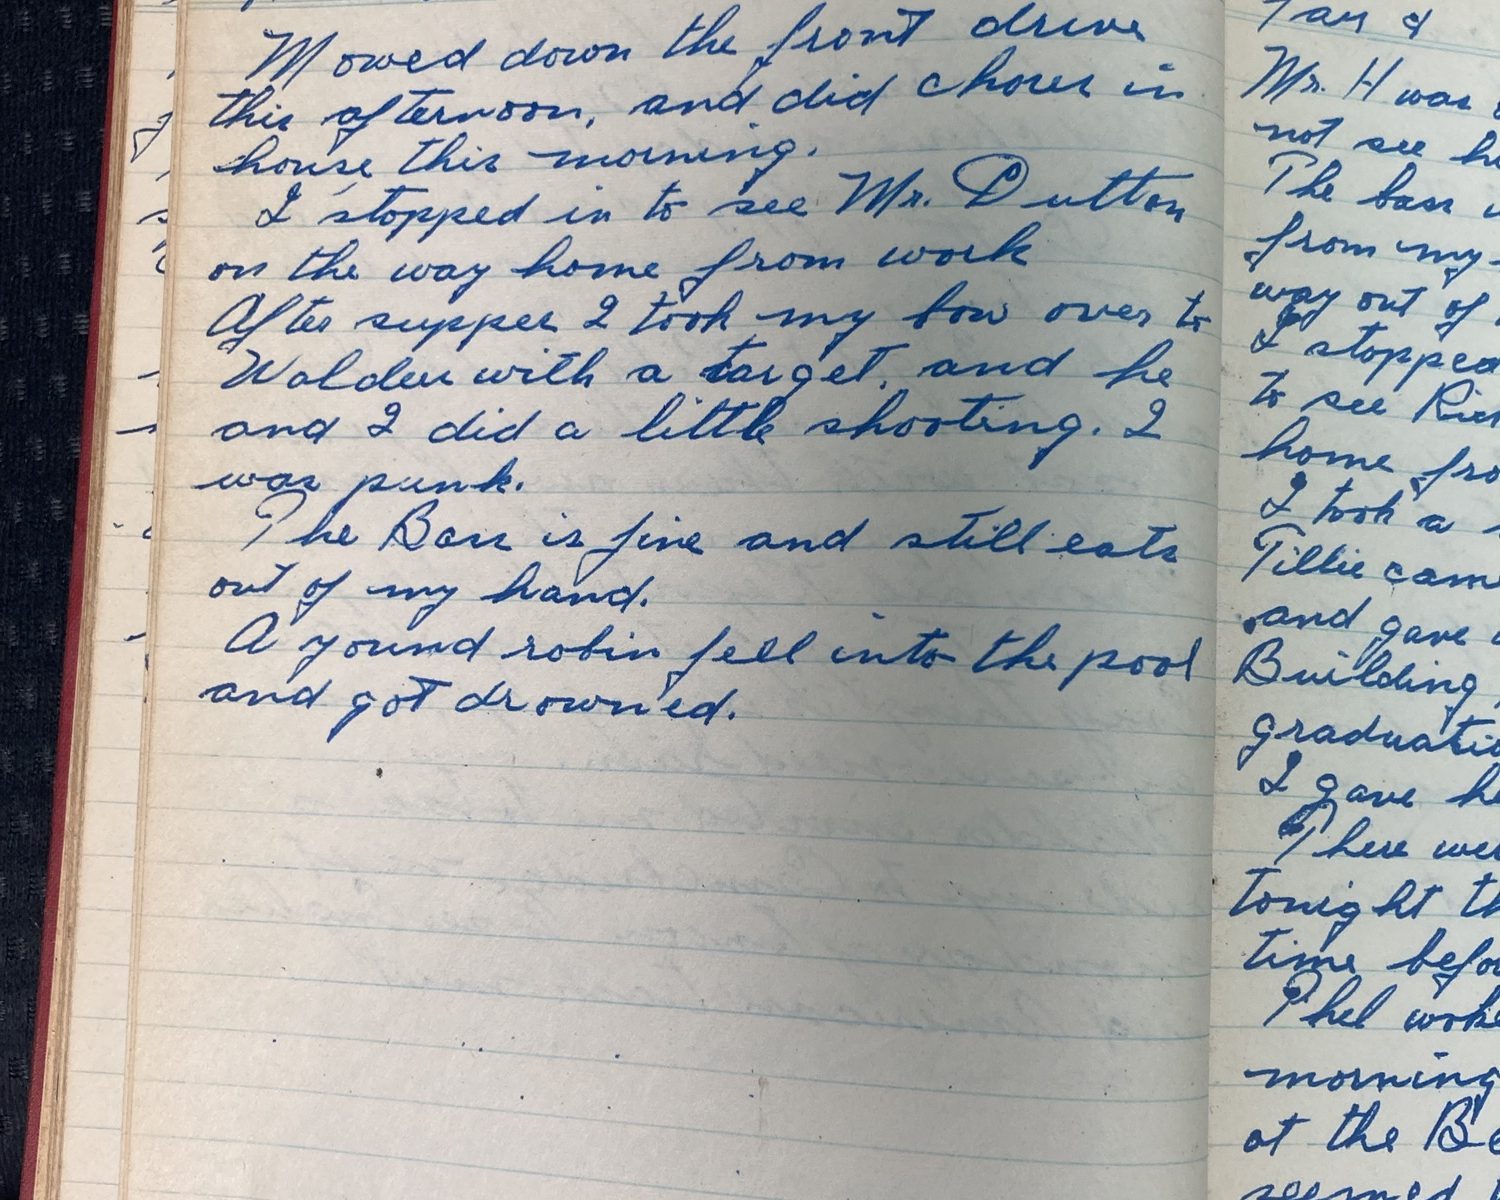 Mowed down the front drive
this afternoon, and did chores in
house this morning.
I stopped in to see Mr. Dutton
on the way home from work
After supper I took my bow over to
Walden with a target, and he
and I did a little shooting. I
was punk.
The Bass is fine and still eats
out of my hand.
A yound robin fell into the pool
and got drowned.
Mr. H was
not see
The bass
from my
way out of
I stopped
to see
home
I took a
Tillie came
and gave
Building
I gave
There
tonight
time
Phel woke
morning
at the
seemed